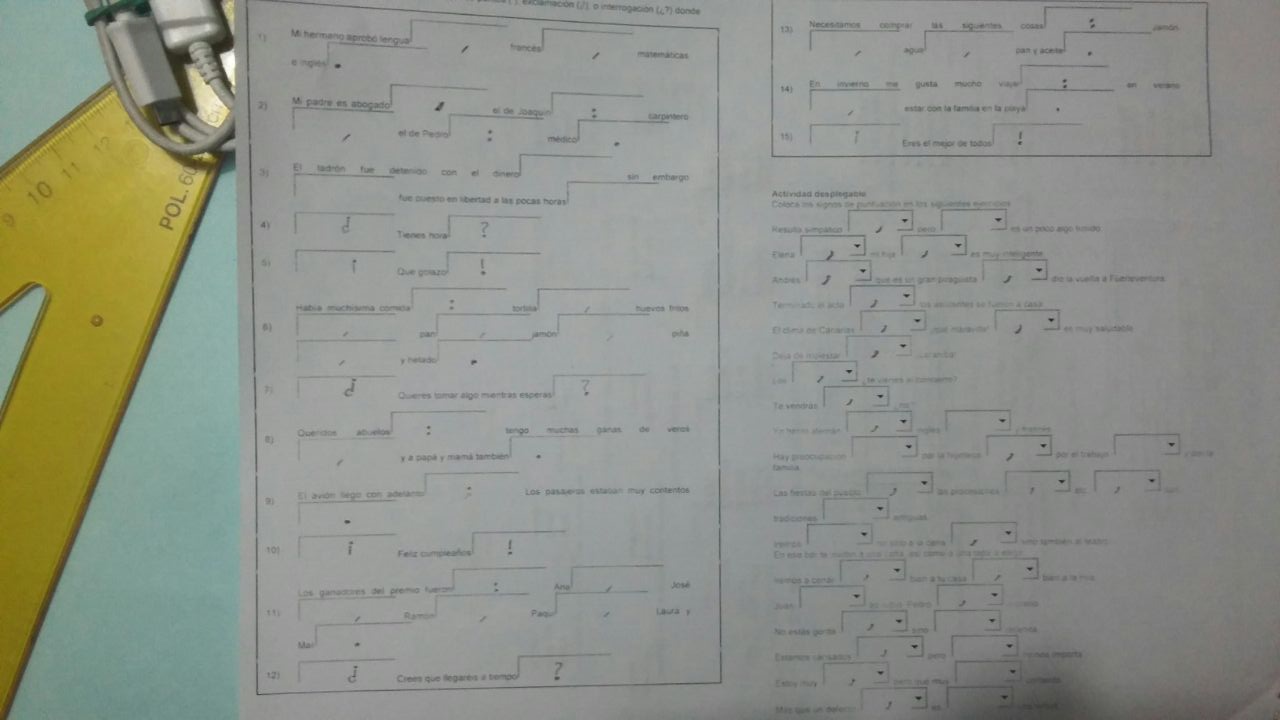 exclamación (¡/) o interrogación (¿?) donde
1) Mi hermano aprobó lengua , francés , matemáticas
e inglés .
2) Mi padre es abogado , el de Joaquín : carpintero
, el de Pedro : médico .
3) El ladrón fue detenido con el dinero sin embargo
fue puesto en libertad a las pocas horas
4) ¿ Tienes hora ?
5) ¡ Que golazo !
Había muchísima comida : tortilla , huevos fritos
6) , pan , jamón , piña
, y helado .
7) ¿ Quieres tomar algo mientras esperas ?
Queridos abuelos : tengo muchas ganas de veros
8) , y a papá y mamá también .
9) El avión llegó con adelanto : Los pasajeros estaban muy contentos
.
10) ¡ Feliz cumpleaños !
Los ganadores del premio fueron : Ana , José
11) , Ramón , Paqui , Laura y
Mar .
12) ¿ Crees que llegaréis a tiempo ?
13) Necesitamos comprar las siguientes cosas : jamón
, agua , pan y aceite .
14) En invierno me gusta mucho viajar : en verano
, estar con la familia en la playa .
15) ¡ Eres el mejor de todos !
Actividad desplegable
Coloca los signos de puntuación en los siguientes ejercicios
Resulta simpático , pero es un poco algo tímido
Elena , mi hija , es muy inteligente
Andrés , que es un gran piragüista , dio la vuelta a Fuerteventura
Terminado el acto , los asistentes se fueron a casa
El clima de Canarias , ¡qué maravilla! , es muy saludable
Deja de molestar ,
, ¿te vienes al concierto?
Te vendrás , ¿no?
, inglés y francés
Hay preocupación por la hipoteca , por el trabajo y por la
familia
Las fiestas del pueblo , las procesiones , etc , son
tradiciones antiguas
no sólo a la cena , sino también al teatro
En ese bar te invitan a una caña, así como a una tapa a elegir
Iremos a cenar , bien a tu casa , bien a la mía
Juan es rubio Pedro , moreno
No estás gorda , sino
Estamos cansados , pero no nos importa
Estoy muy , pero que muy contento
Más que un defecto , es una virtud
POL. 60
9 10 11 12